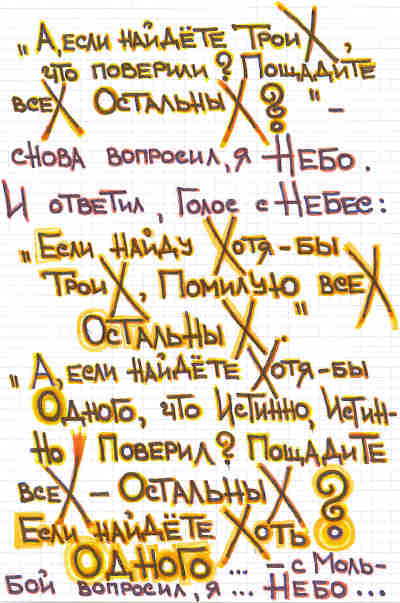 „А, если найдёте Троих,
что поверили? Пощадите
всех Остальных?" –
снова вопросил, я Небо.
И ответил, Голос с Небес:
„Если найду Хотя-бы
Троих, Помилую всех
Остальных".
„А, если найдёте Хотя-бы
Одного, что Истинно, Истин-
но Поверил? Пощадите
всех – Остальных?
Если найдёте Хоть
Одного... – с Моль-
бой вопросил, я... Небо...